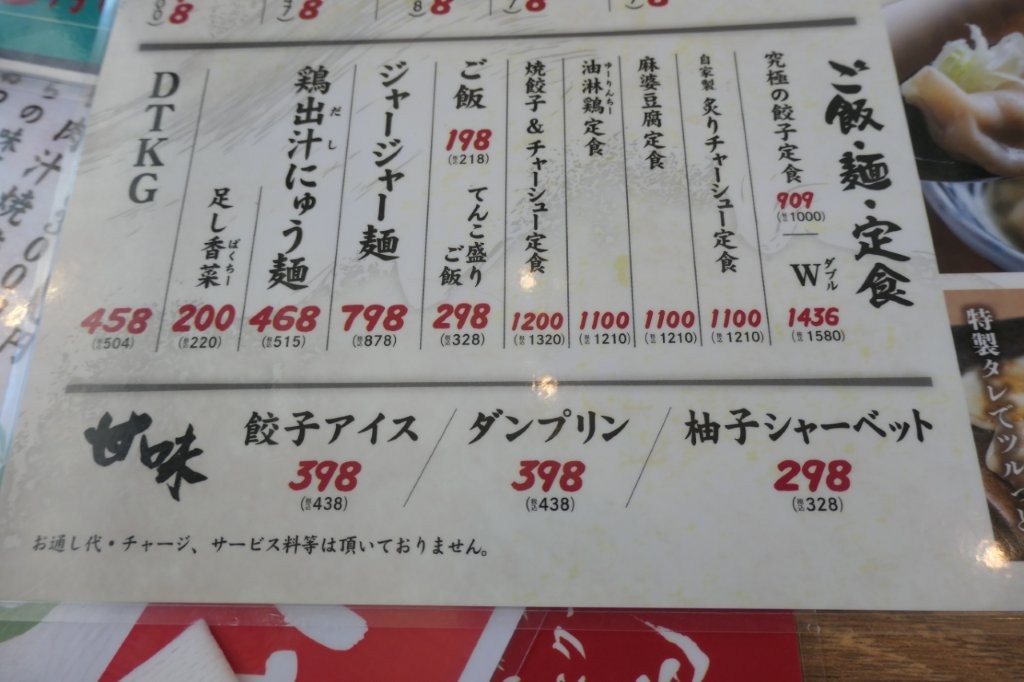 ご飯・麺・定食
究極の餃子定食
909
(税込1000)
W
ダブル
1436
(税込1580)
自家製 炙りチャーシュー定食
1100
(税込1210)
麻婆豆腐定食
1100
(税込1210)
油淋鶏定食
ゆーりんちー
1100
(税込1210)
焼餃子&チャーシュー定食
1200
(税込1320)
ご飯
198
(税込218)
てんこ盛りご飯
298
(税込328)
ジャージャー麺
798
(税込878)
鶏出汁にゅう麺
だし
468
(税込515)
足し香菜
ぱくちー
200
(税込220)
DTKG
458
(税込504)
甘味
餃子アイス
398
(税込438)
ダンプリン
398
(税込438)
柚子シャーベット
298
(税込328)
お通し代・チャージ、サービス料等は頂いておりません。
特製タレでツル